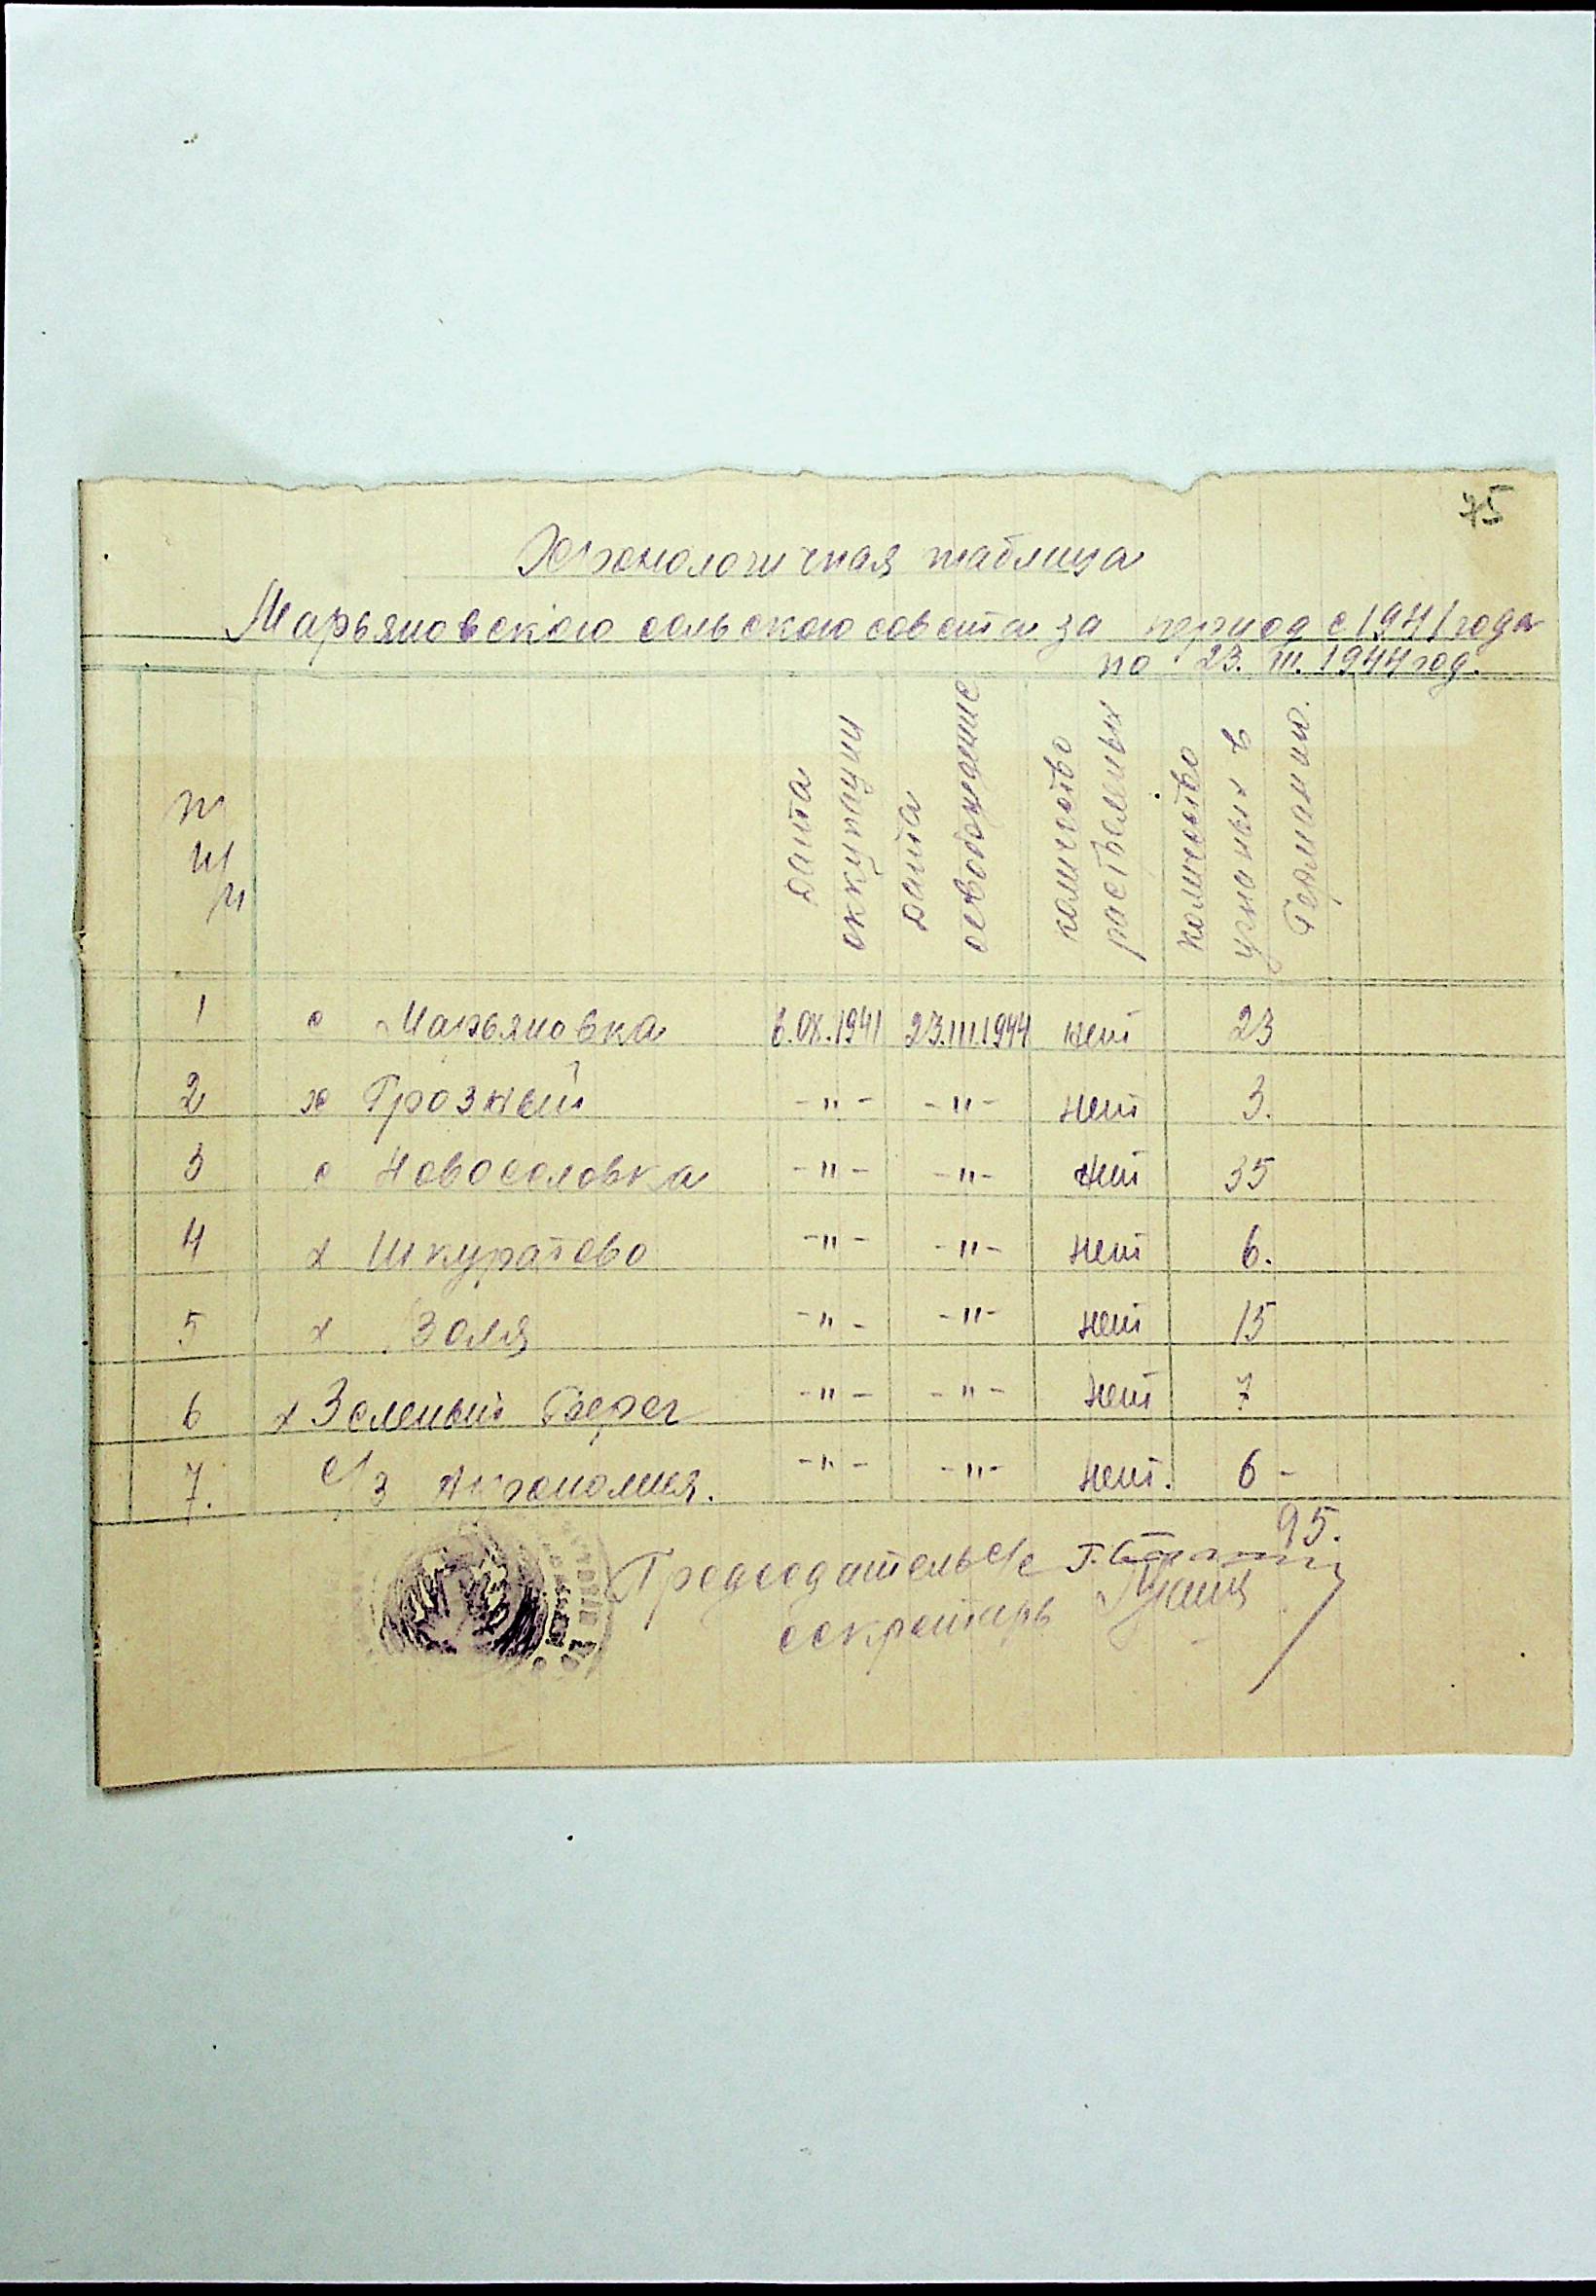 75
Хронологичная таблица
Марьяновского сельского совета за период с 1941 года
по 23. III. 1944 год.
дата оккупации
дата освобождение
количество растреленых
количество угнаных в Германию.
1 с Марьяновка 6.IX.1941 23.III.1944 нет 23
2 х Грозный -"- -"- нет 3.
3 с Новоселовка -"- -"- нет 35
4 х Шкуратово -"- -"- нет 6.
5 х Золя -"- -"- нет 15
6 х Зеленый Берег -"- -"- нет 7
7. с/з Агрономия. -"- -"- нет. 6 -
95.
Председатель с/с
секретарь